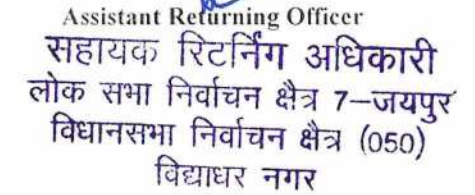 Assistant Returning Officer
सहायक रिटर्निंग अधिकारी
लोक सभा निर्वाचन क्षैत्र 7–जयपुर
विधानसभा निर्वाचन क्षैत्र (050)
विद्याधर नगर